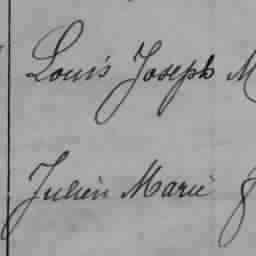 Louis Joseph M
Julien Marie